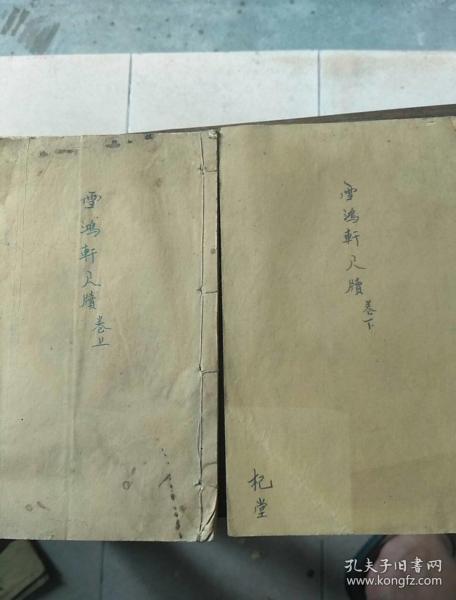 雪鸿軒尺牘卷上
雪鸿軒尺牘卷下
杞堂
孔夫子旧书网
www.kongfz.com